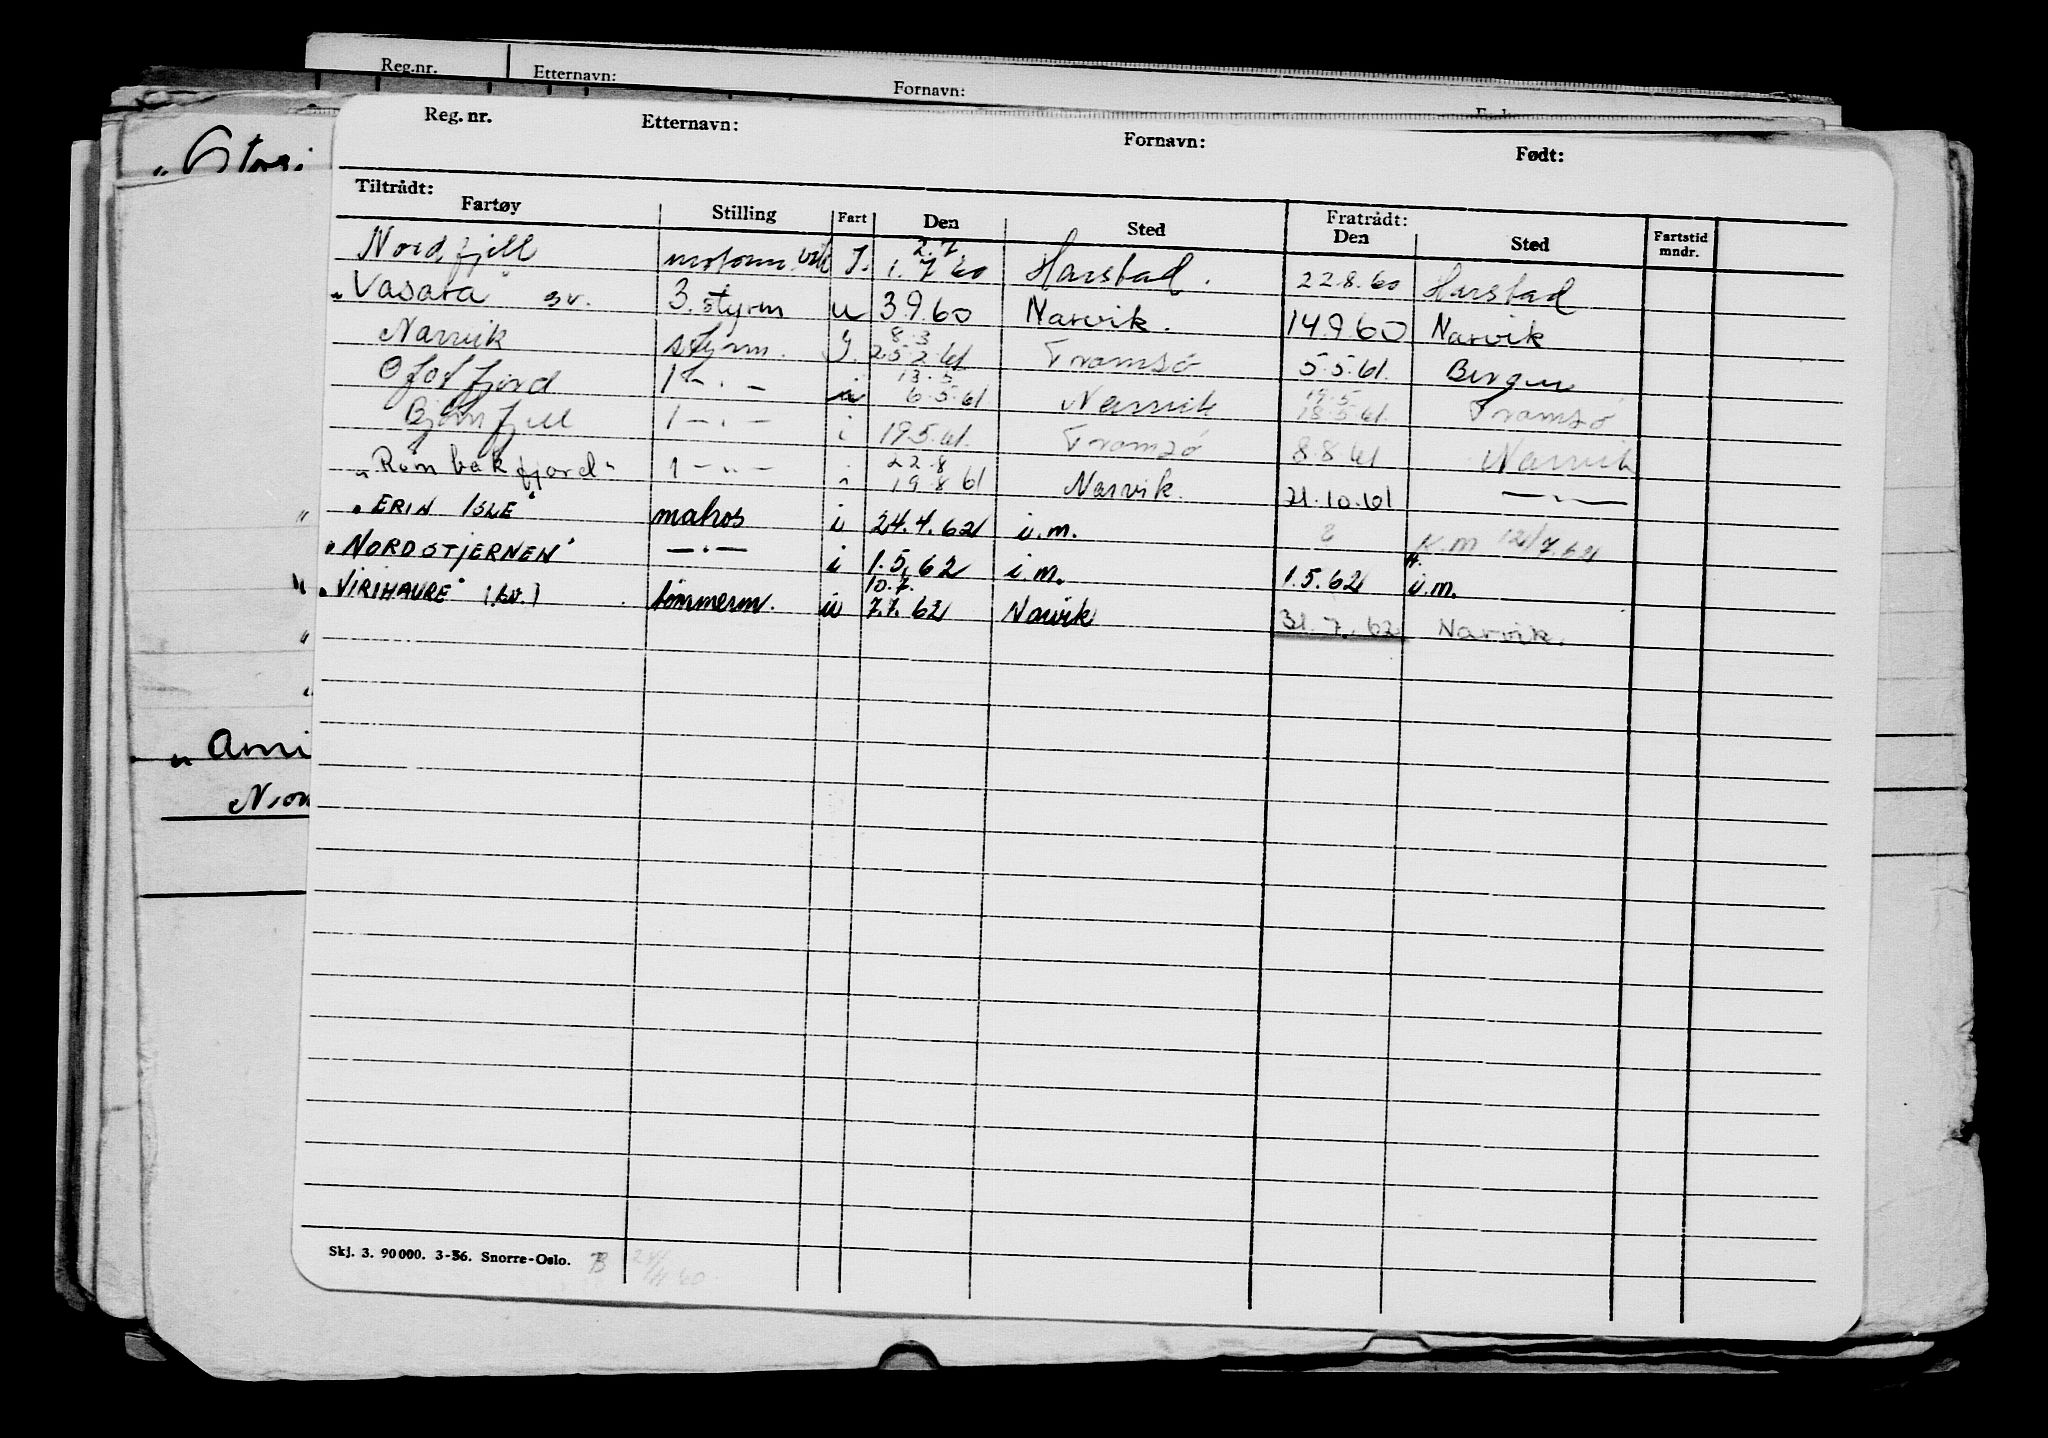 Reg.nr. Etternavn: Fornavn:
Reg. nr. Etternavn: Fornavn: Født:
Tiltrådt: Fratrådt:
Fartøy Stilling Fart Den Sted Den Sted Fartstid mndr.
2.7
Nordfjell I. 1.7 60 Harstad. 22.8.60 Harstad
"Vasara" sv. 3. styrm u 3.9.60 Narvik. 14.9.60 Narvik
8.3
Narvik styrm. I. 25.2.61 Tromsø 5.5.61. Bergen
13.5 19.5
Ofotfjord 1 - . - i 6.5.61 Narvik 18.5.61. Tromsø
Bjørnfjell 1 - . - i 19.5.61. Tromsø 8.8.61 Narvik
22.8
"Rombakfjord" 1 - " - 19.8.61 Narvik. 21.10.61 — " —
"ERIN ISLE" matros u 24.4.62 u.m. K.m 12/7.62
"NORDSTJERNEN" — " — i 1.5.62 i.m. 1.5.62 u.m.
10.7.
"VIRIHAURE" tømmerm. u 7.7.62 Narvik 31.7.62 Narvik.
Skj. 3. 90 000. 3-56. Snorre-Oslo. B